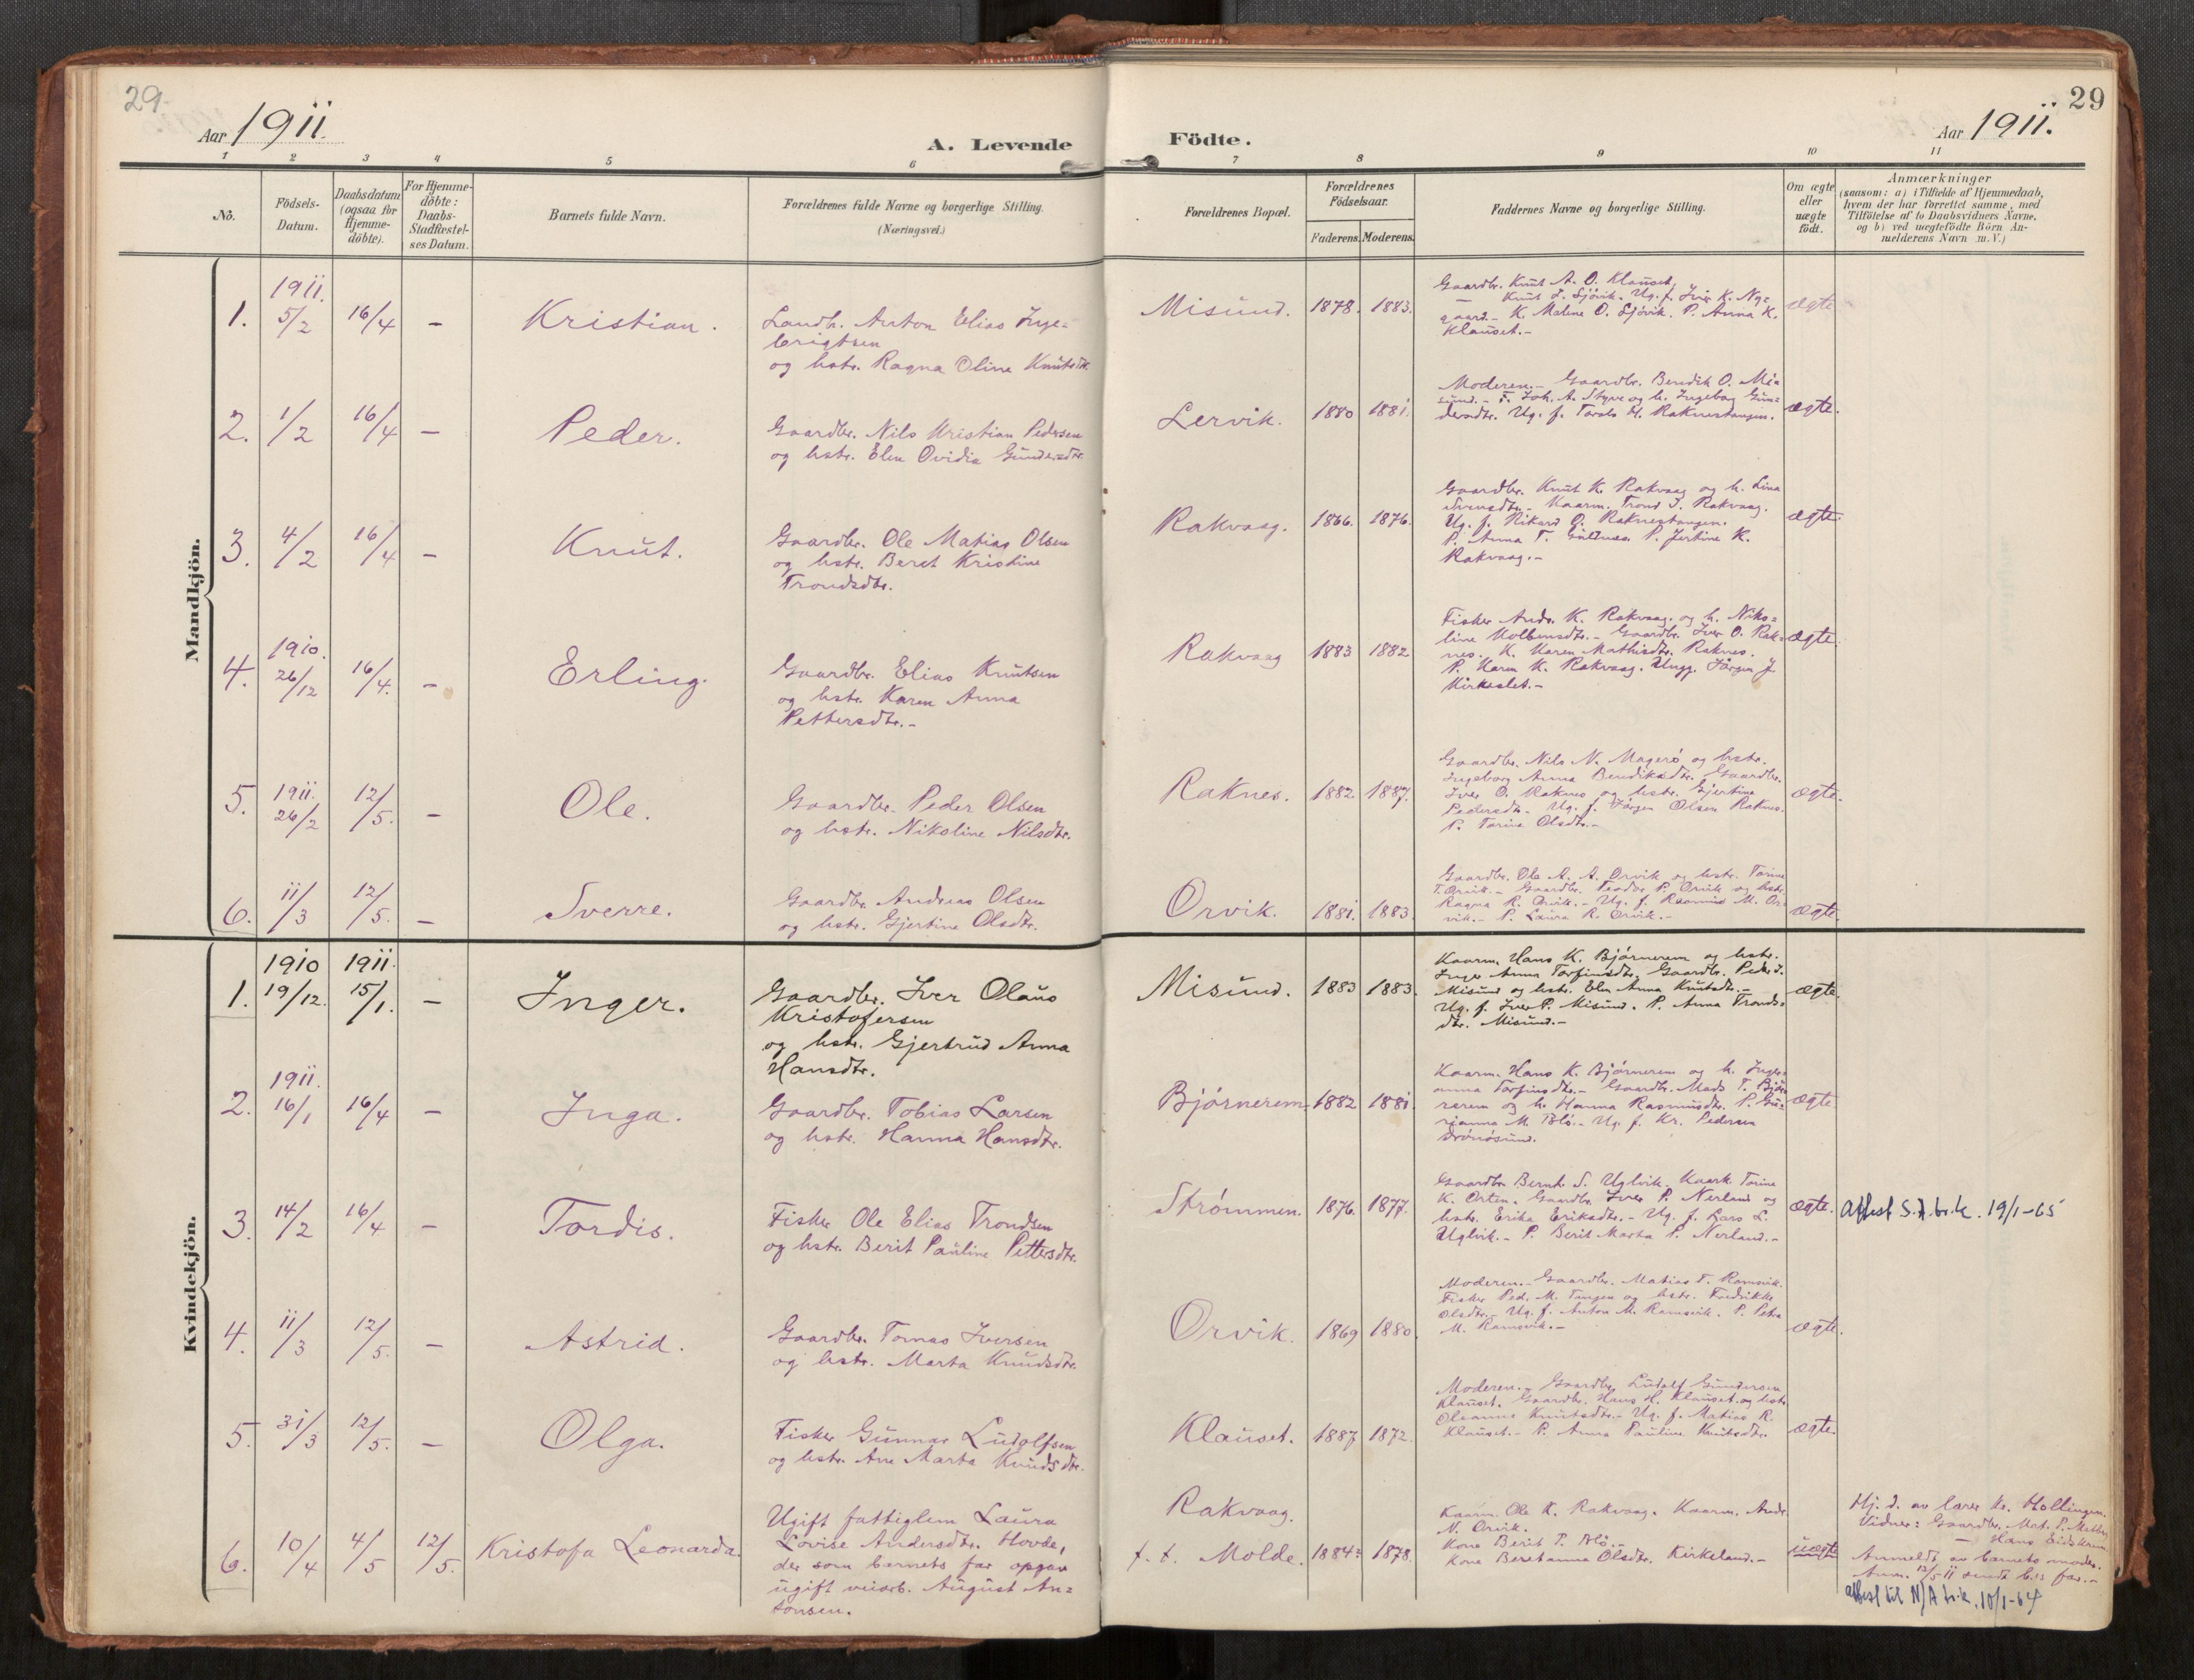 29.
29
Aar 1911.
A. Levende
Födte.
Aar 1911.
1
2
3
4
5
6
7
8
9
10
11
No.
Födsels-
Datum.
Daabsdatum
(ogsaa for
Hjemme-
döbte).
For Hjemme-
döbte:
Daabs-
Stadfæstel-
ses Datum.
Barnets fulde Navn.
Forældrenes fulde Navne og borgerlige Stilling.
(Næringsvei.)
Forældrenes Bopæl.
Forældrenes
Födselsaar.
Faderens.
Moderens.
Faddernes Navne og borgerlige Stilling.
Om ægte
eller
uægte
födt.
Anmærkninger
(saasom: a) i Tilfælde af Hjemmedaab,
hvem der har forrettet samme, med
Tilföielse af to Daabsvidners Navne,
og b) ved uægtefödte Börn An-
melderens Navn m.V.)
Mandkjön.
1.
1911.
5/2
16/4
-
Kristian.
Landh. Anton Elias Inge=
brigtsen
og hstr. Ragna Oline Knutsdtr.
Misund.
1878.
1883.
Gaardbr. Knut A. O. Klauset,
— Knut L. Sjövik. Ug. f. Iver K. Ny=
gaard. K. Malene O. Sjövik. P. Anna K.
Klauset.-
ægte
2.
1/2
16/4
-
Peder.
Gaardbr. Nils Kristian Pedersen
og hstr. Elen Ovidia Gundersdtr.
Lervik.
1880
1881.
Moderen.- Gaardbr. Bendik O. Mi=
sund.- F. Joh. A. Styve og h. Ingebog Gun=
dersdtr. Ug. f. Torals H. Raknestangen.
ægte.
3.
4/2
16/4
-
Knut.
Gaardbr. Ole Matias Olsen
og hstr. Beret Kristine
Trondsdtr.
Rakvaag.
1866.
1876.
Gaardbr. Knut K. Rakvaag og h. Lina
Svensdtr.- Kaarm. Trond I. Rakvaag.
Ug. f. Rikard O. Raknestangen.
P. Anna T. P. Jertine K.
Rakvaag.-
ægte.
4.
1910.
26/12
16/4.
-
Erling.
Gaardbr. Elias Knutsen
og hstr. Karen Anna
Pettersdtr.-
Rakvaag
1883
1882
Fisker Andr. K. Rakvaag. og h. Niko=
line Kolbensdtr.- Gaardbr. Iver O. Rak=
nes. K. Karen Mathisdtr. Raknes.
P. Karen K. Rakvaag. Ungg. Jörgen J.
Kirkeslet.-
ægte.
5.
1911.
26/2
12/5.
-
Ole.
Gaardbr. Peder Olsen
og hstr. Nikoline Nilsdtr.
Raknes.
1882
1887.
Gaardbr. Nils N. Magerö og hstr.
Ingeborg Anna Bendiksdtr. Gaardbr.
Iver O. Raknes og hstr. Gjertine
Pedersdtr. Ug. f. Jörgen Olsen Raknes.
P. Torine Olsdtr.-
ægte.
6.
11/3
12/5.
-
Sverre.
Gaardbr. Andreas Olsen
og hstr. Gjertine Olsdtr.
Orvik.
1881.
1883.
Gaardbr. Ole A. A. Orvik og hstr. Torine
T. Orvik.- Gaardbr. Teodor P. Orvik og hstr.
Ragna R. Orvik.- Ug. f. Rasmus M. Or=
vik.- P. Laura R. Orvik.-
ægte.
Kvindekjön.
1.
1910
19/12.
1911.
15/1.
-
Inger.
Gaardbr. Iver Olaus
Kristofersen
og hstr. Gjertrud Anna
Hansdtr.
Misund.
1883
1883.
Kaarm. Hans K. Björnerem og hstr.
Inger Anna Torfinsdtr. Gaardbr. Peder I.
Misund og hstr. Elen Anna Knutsdtr.-
Ug. f. Iver P. Misund. P. Anna Tronds=
dtr. Misund.-
ægte.
2.
1911.
16/1
16/4
-
Inga.
Gaardbr. Tobias Larsen
og hstr. Hanna Hansdtr.
Björnerem.
1882
1881.
Kaarm. Hans K. Björnerem og h. Inger=
anna Torfinsdtr.- Gaardbr. Mads T. Björ=
nerem og h. Hanna Rasmusdtr. P. Gu=
rianna M. Blö.- Ug. f. Kr. Pedersen
Drönösund.
ægte
3.
14/2
16/4
-
Tordis.
Fisker Ole Elias Trondsen
og hstr. Berit Pauline Pettersdtr.
Strömmen.
1876.
1877.
Gaardbr. Bernt S. Uglvik. Kaark. Torine
K. Orten. Gaardbr. Iver P. Nerland og
hstr. Erika Eriksdtr.- Ug. f. Lars L.
Uglvik.- P. Berit Marta P. Nerland.-
ægte.
Attest S.A. tr.k. 19/1-65
4.
11/3
12/5.
-
Astrid.
Gaardbr. Tomas Iversen
og hstr. Marta Knudsdtr.
Orvik.
1869
1880.
Moderen.- Gaardbr. Matias T. Ramsvik.
Fisker Ped. M. Tangen og hstr. Fredrikke
Olsdtr.- Ug. f. Anton M. Ramsvik. P. Petra
M. Ramsvik.-
ægte.
5.
31/3
12/5.
-
Olga.
Fisker Gunnar Ludolfsen
og hstr. Ane Marta Knudsdtr.
Klauset.
1887
1872.
Moderen.- Gaardbr. Ludolf Gundersen
Klauset. Gaardbr. Hans H. Klauset og hstr.
Oleanna Knutsdtr.- Ug. f. Matias R.
Klauset.- P. Anna Pauline Knutsdtr.
ægte.
6.
10/4
4/5
12/5.
Kristofa Leonarda.
Ugift fattiglem Laura
Lovise Andersdtr. Hovde,
der som barnets far opgav
ugift veiarb. August An=
tonsen.
Rakvaag.
t. t. Molde.
1884?
1878.
Kaarm. Ole K. Rakvaag. Kaarm. Andr.
N. Orvik.
Kone Berit P. Blö.-
Kone Beretanna Olsdtr. Kirkeland.-
uægte
Hj. d. av lærer Kr. Hollingen.
Vidner: Gaardbr. Mat. P.
— Hans Eidskrem.
Anmeldt av barnets moder.
Anm. 12/5 11 sendt b.s far.-
attest til N/A tr.k. 10/1-64